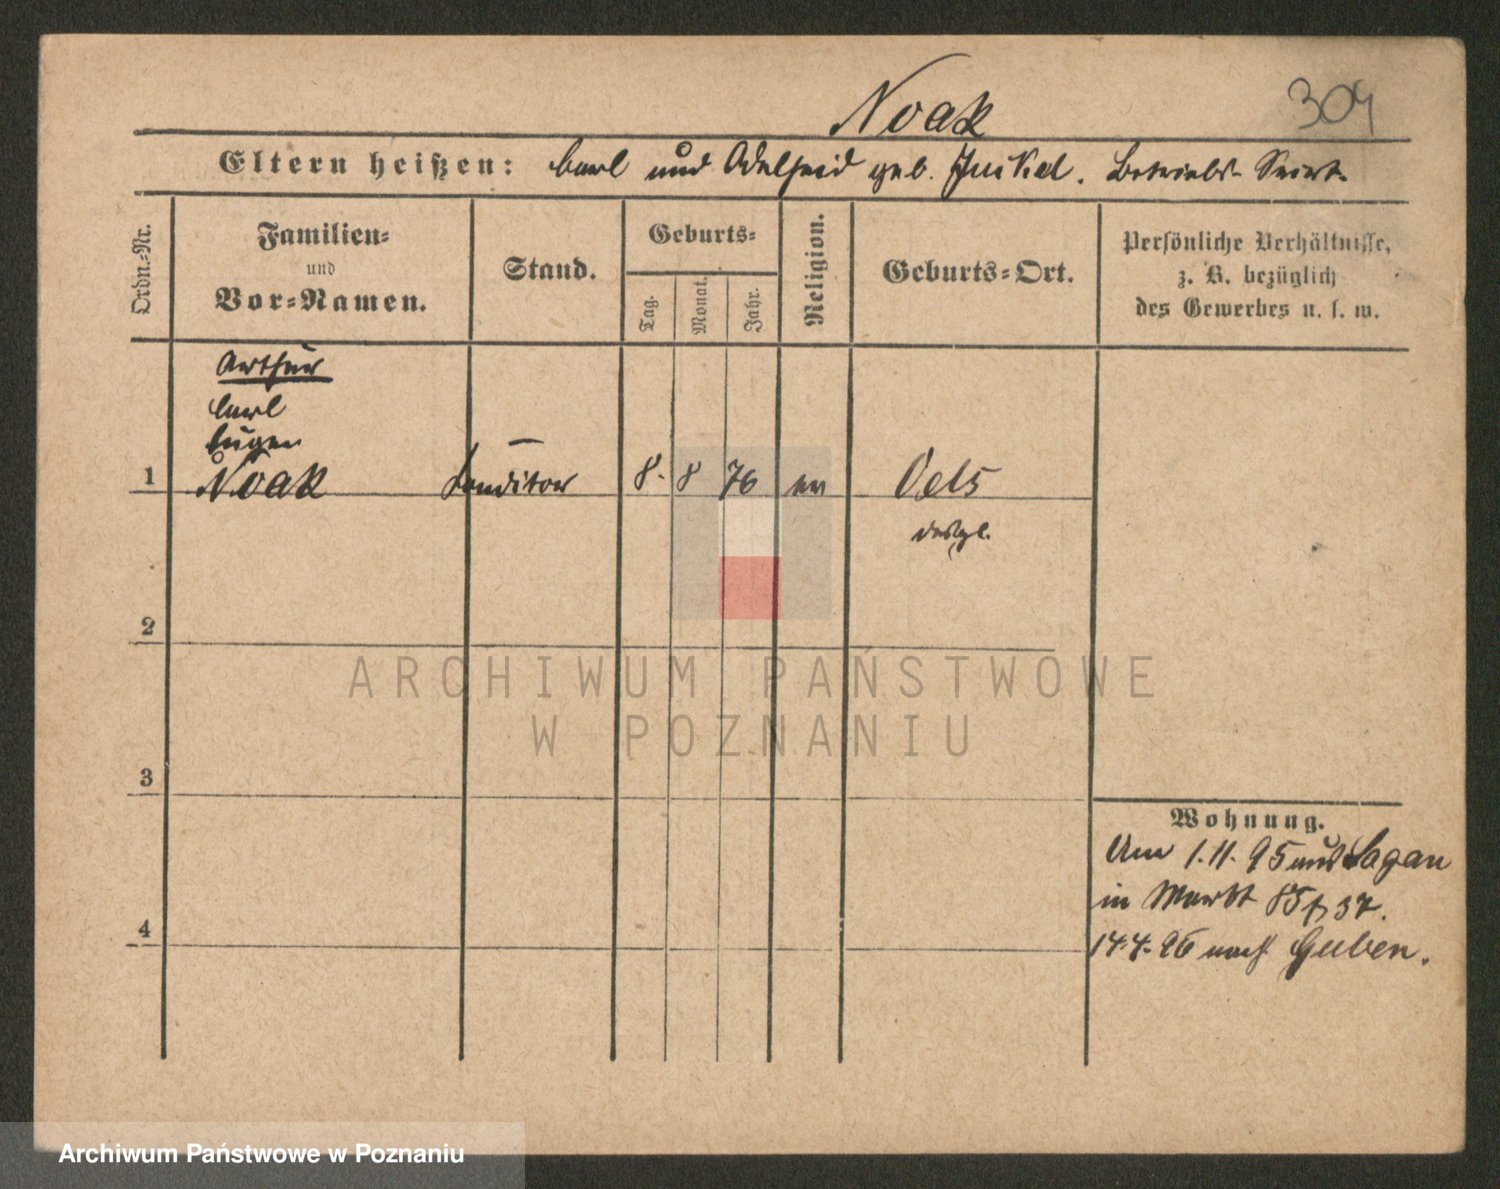 Noak
304
Eltern heißen: Carl und Adelheid geb. Juckel. Betriebs- Secret.
Ordn.-Nr.
Familien-
und
Vor-Namen.
Stand.
Geburts-
Tag.
Monat.
Jahr.
Religion.
Geburts-Ort.
Persönliche Verhältnisse,
z. B. bezüglich
des Gewerbes u. s. w.
Arthur
Carl
Eugen
1 Noak Conditor 8. 8 76 ev Oels
desgl.
2
3
4
Wohnung.
Am 1.11.95 aus Sagan
in Markt 85 37.
14.4.96 nach Guben.
ARCHIWUM PAŃSTWOWE
W POZNANIU
Archiwum Państwowe w Poznaniu